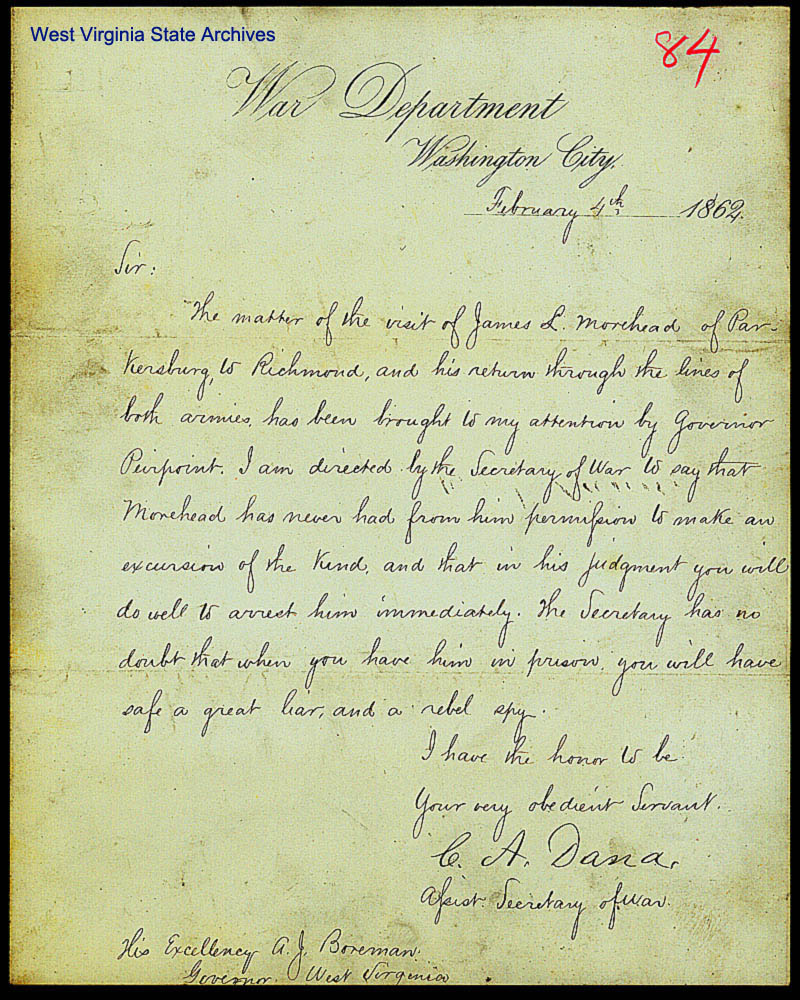 West Virginia State Archives
84
War Department
Washington City.
February 4th, 1862.
Sir:
The matter of the visit of James L. Morehead of Par-
kersburg, to Richmond, and his return through the lines of
both armies, has been brought to my attention by Governor
Peirpoint. I am directed by the Secretary of War to say that
Morehead has never had from him permission to make an
excursion of the kind, and that in his judgment you will
do well to arrest him immediately. The Secretary has no
doubt that when you have him in prison, you will have
safe a great liar, and a rebel spy.
I have the honor to be
Your very obedient Servant.
C. A. Dana.
Assist. Secretary of War.
His Excellency A. J. Boreman.
Governor. West Virginia